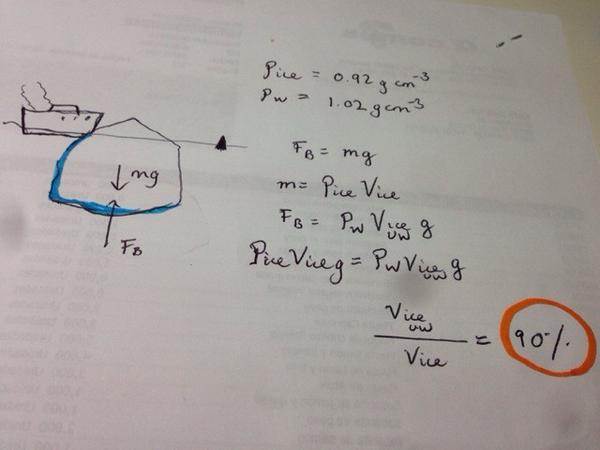 ρice = 0.92 g cm⁻³
ρw = 1.02 g cm⁻³
FB = mg
m = ρice Vice
FB = ρw Vice uw g
ρice Vice g = ρw Vice uw g
Vice uw / Vice = 90%
mg
FB